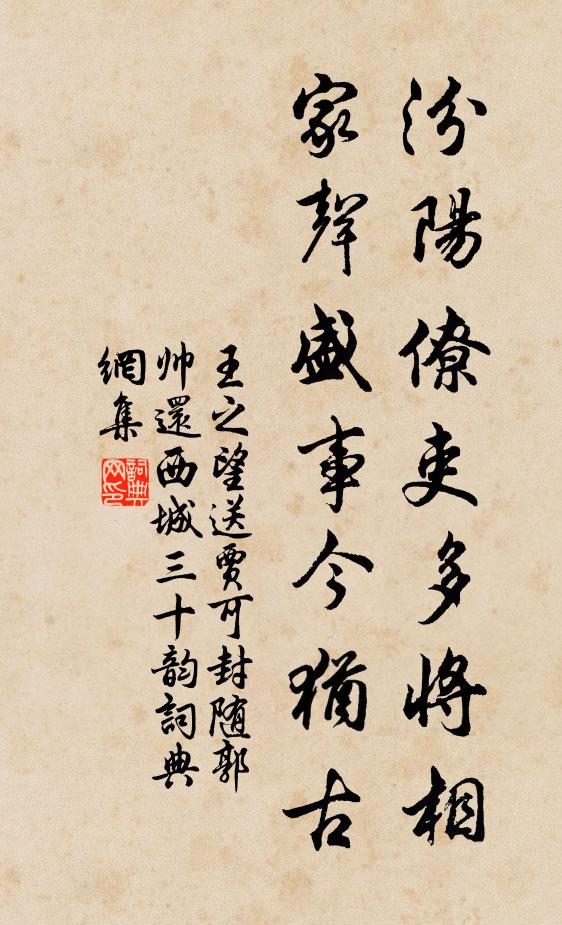 汾陽僚吏多將相
家聲盛事今猶古
王之望送賈可封隨郭
帅還西城三十韵詞典
網集
詞典
网印